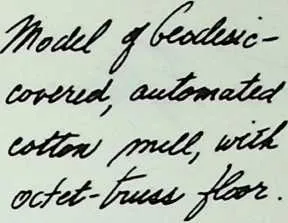 Model of Geodesic-
covered, automated
cotton mill, with
octet-truss floor.